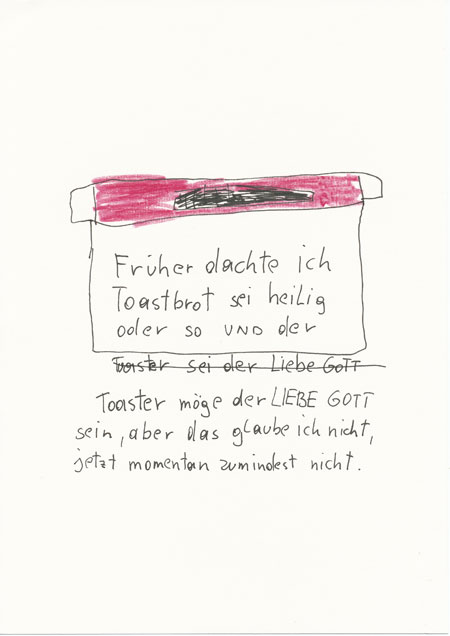 Früher dachte ich
Toastbrot sei heilig
oder so UND der
Toaster sei der Liebe GOTT
Toaster möge der LIEBE GOTT
sein, aber das glaube ich nicht,
jetzt momentan zumindest nicht.